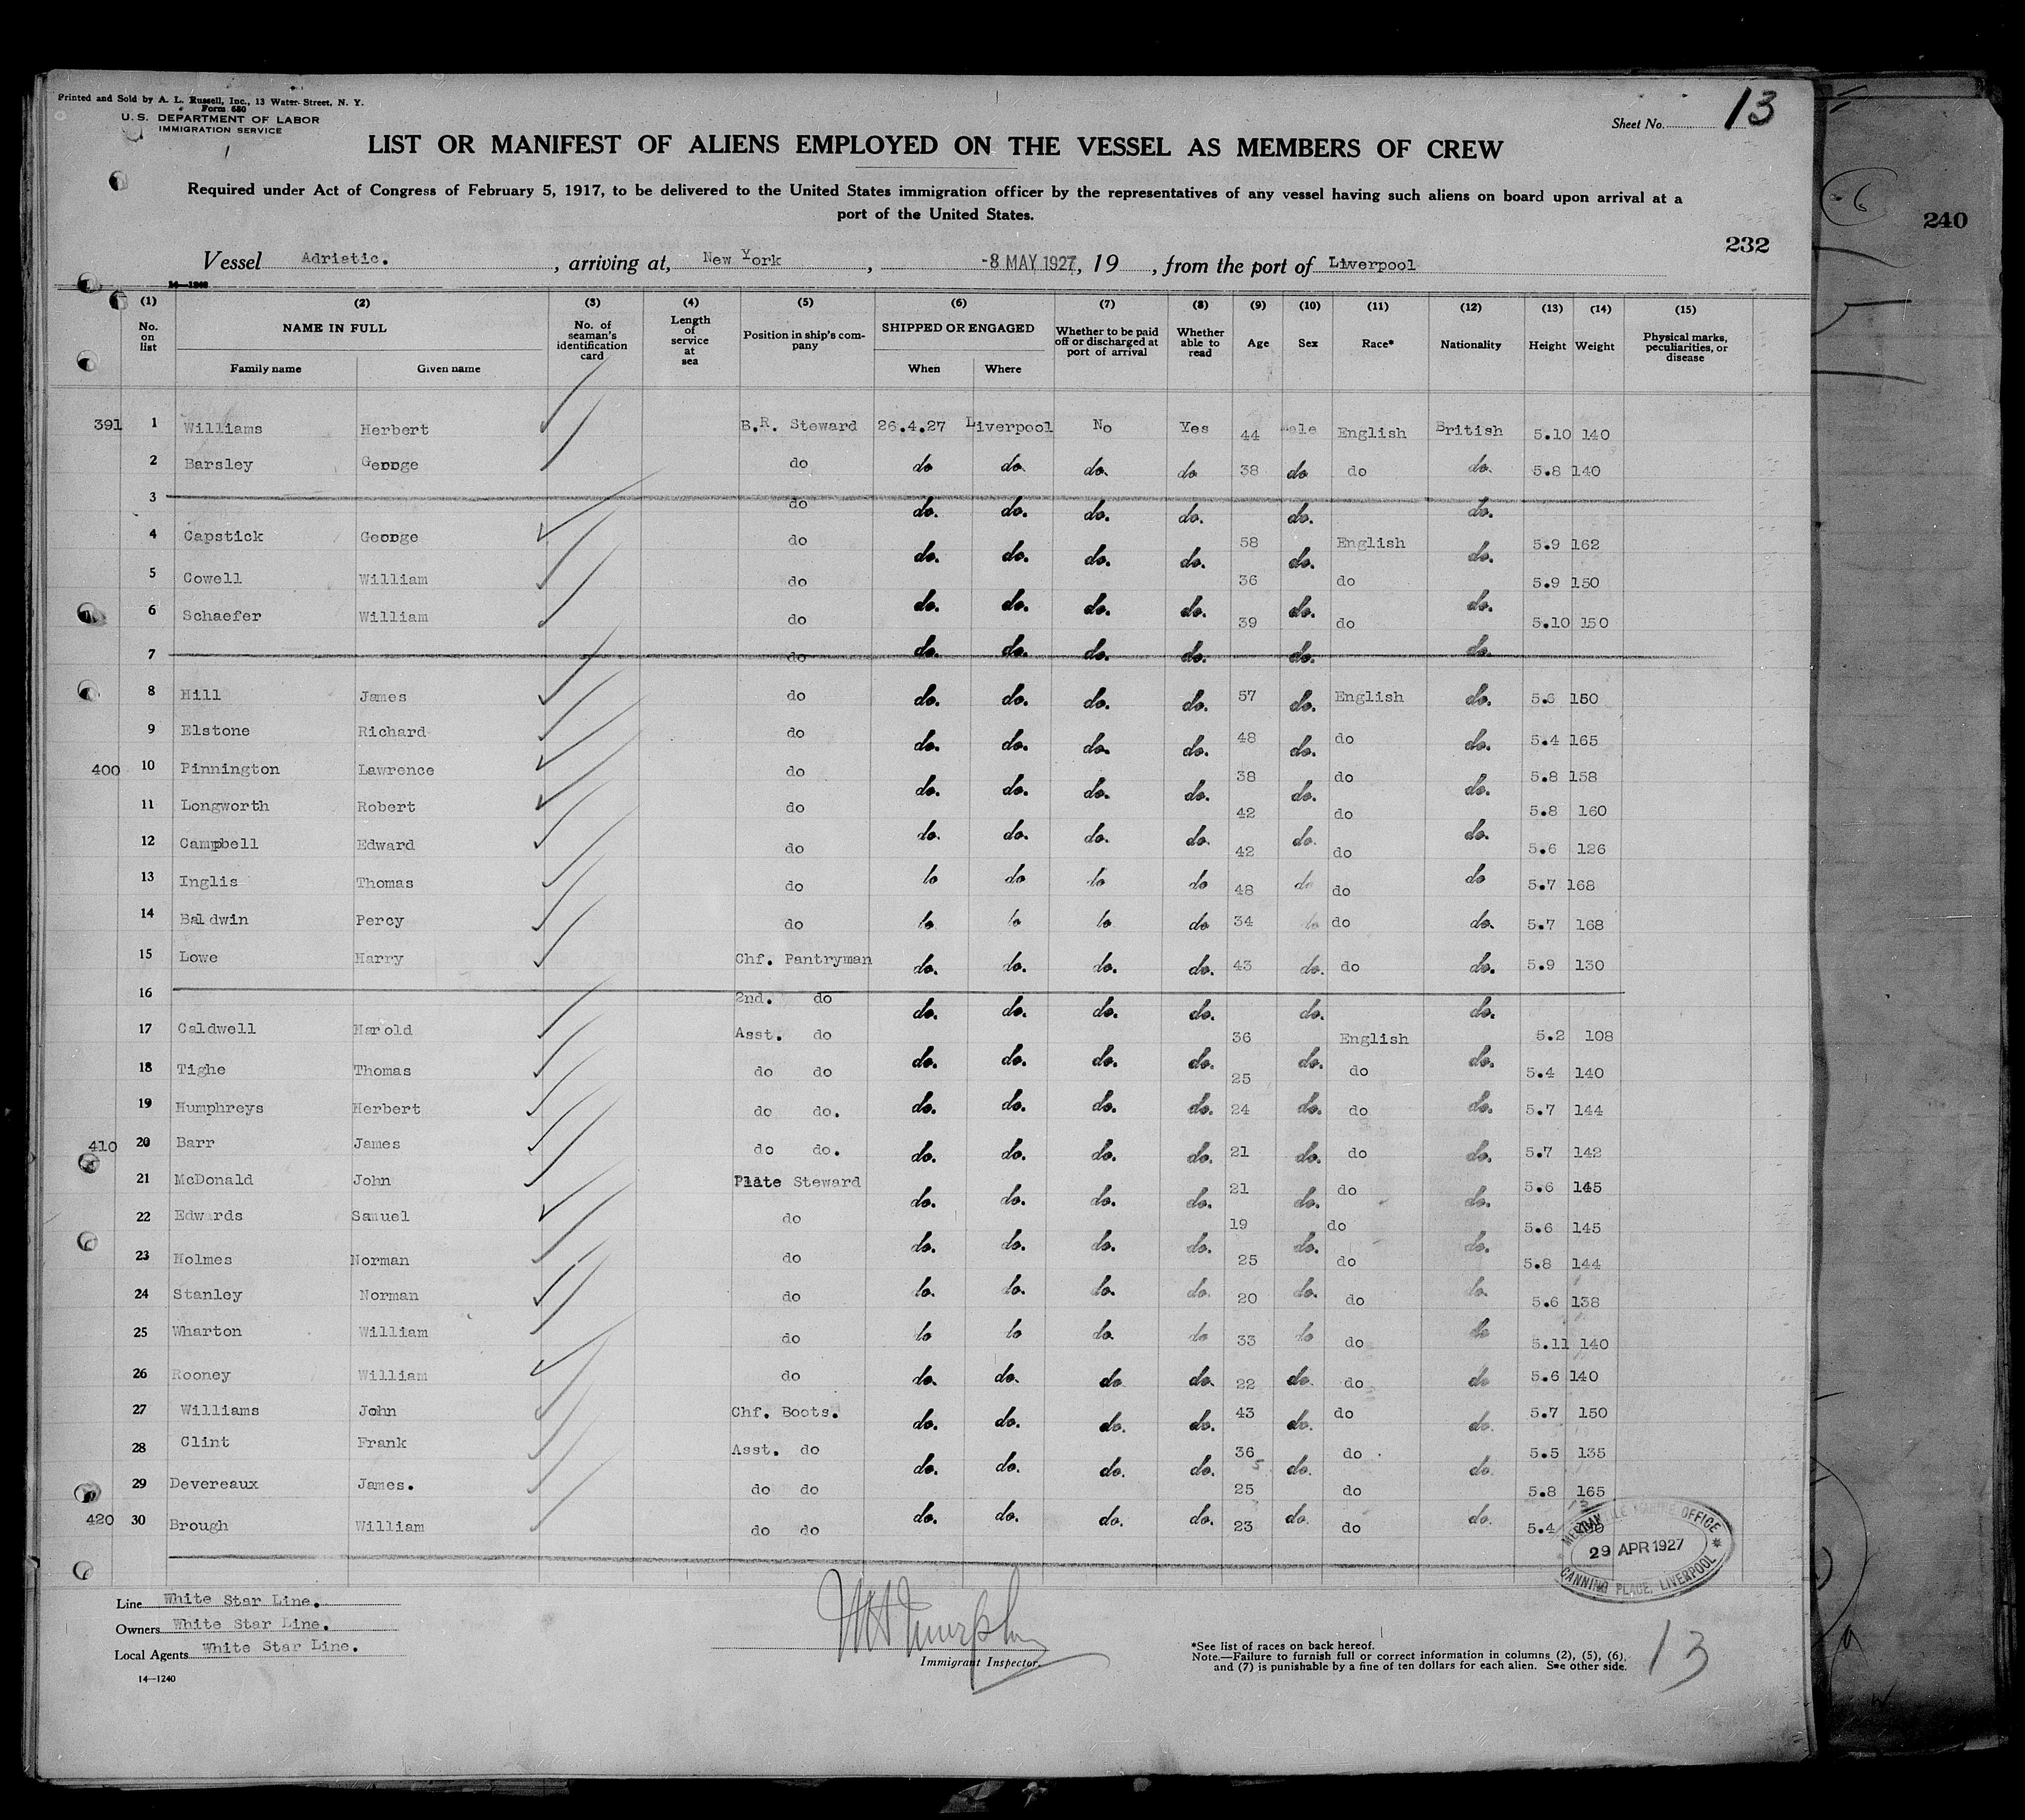 Printed and Sold by A. L. Russell, Inc., 13 Water Street, N. Y.
Form 680
U. S. DEPARTMENT OF LABOR
IMMIGRATION SERVICE
Sheet No. 13
LIST OR MANIFEST OF ALIENS EMPLOYED ON THE VESSEL AS MEMBERS OF CREW
Required under Act of Congress of February 5, 1917, to be delivered to the United States immigration officer by the representatives of any vessel having such aliens on board upon arrival at a
port of the United States.
6
240
232
Vessel Adriatic. , arriving at, New York , -8 MAY 1927, 19 , from the port of Liverpool
14—1240
(1) (2) (3) (4) (5) (6) (7) (8) (9) (10) (11) (12) (13) (14) (15)
No. on list NAME IN FULL Family name Given name No. of seaman's identification card Length of service at sea Position in ship's company SHIPPED OR ENGAGED When Where Whether to be paid off or discharged at port of arrival Whether able to read Age Sex Race* Nationality Height Weight Physical marks, peculiarities, or disease
391 1 Williams Herbert B.R. Steward 26.4.27 Liverpool No Yes 44 male English British 5.10 140
2 Barsley George do do do. do. do 38 do do do. 5.8 140
3 do do. do. do. do. do. do.
4 Capstick George do do. do. do. do. 58 do. English do. 5.9 162
5 Cowell William do do. do. do. do. 36 do. do do. 5.9 150
6 Schaefer William do do. do. do. do. 39 do. do do. 5.10 150
7 do
8 Hill James do do. do. do. do. 57 do. English do. 5.6 150
9 Elstone Richard do do. do. do. do. 48 do. do do. 5.4 165
400 10 Pinnington Lawrence do do. do. do. do. 38 do. do do. 5.8 158
11 Longworth Robert do do. do. do. do. 42 do. do do. 5.8 160
12 Campbell Edward do 42 do 5.6 126
13 Inglis Thomas do do do do do 48 do do do 5.7 168
14 Baldwin Percy do do do do do 34 do do do. 5.7 168
15 Lowe Harry Chf. Pantryman do. do. do. do. 43 do. do do. 5.9 130
16 2nd. do do. do. do. do. do.
17 Caldwell Harold Asst. do 36 English 5.2 108
18 Tighe Thomas do do do. do. do. do. 25 do. do do. 5.4 140
19 Humphreys Herbert do do. do. do. do. do. 24 do. do do. 5.7 144
410 20 Barr James do do. do. do. do. do. 21 do. do do. 5.7 142
21 McDonald John Plate Steward do. do. do. do. 21 do. do do. 5.6 145
22 Edwards Samuel do 19 do 5.6 145
23 Holmes Norman do do. do. do. do. 25 do. do do. 5.8 144
24 Stanley Norman do do. do. do. do. 20 do. do do. 5.6 138
25 Wharton William do do do do. do 33 do do do 5.11 140
26 Rooney William do do. do. do do. 22 do. do do 5.6 140
27 Williams John Chf. Boots. do. do. do. do. 43 do. do do. 5.7 150
28 Clint Frank Asst. do 36 do 5.5 135
29 Devereaux James. do do do. do. do. do. 25 do. do do. 5.8 165
420 30 Brough William do do do. do. do. do. 23 do. do do. 5.4
MERCANTILE MARINE OFFICE
29 APR 1927
CANNING PLACE, LIVERPOOL
Line White Star Line.
Owners White Star Line.
Local Agents White Star Line.
14—1240
Murphy
Immigrant Inspector.
*See list of races on back hereof.
Note.—Failure to furnish full or correct information in columns (2), (5), (6),
and (7) is punishable by a fine of ten dollars for each alien. See other side.
13